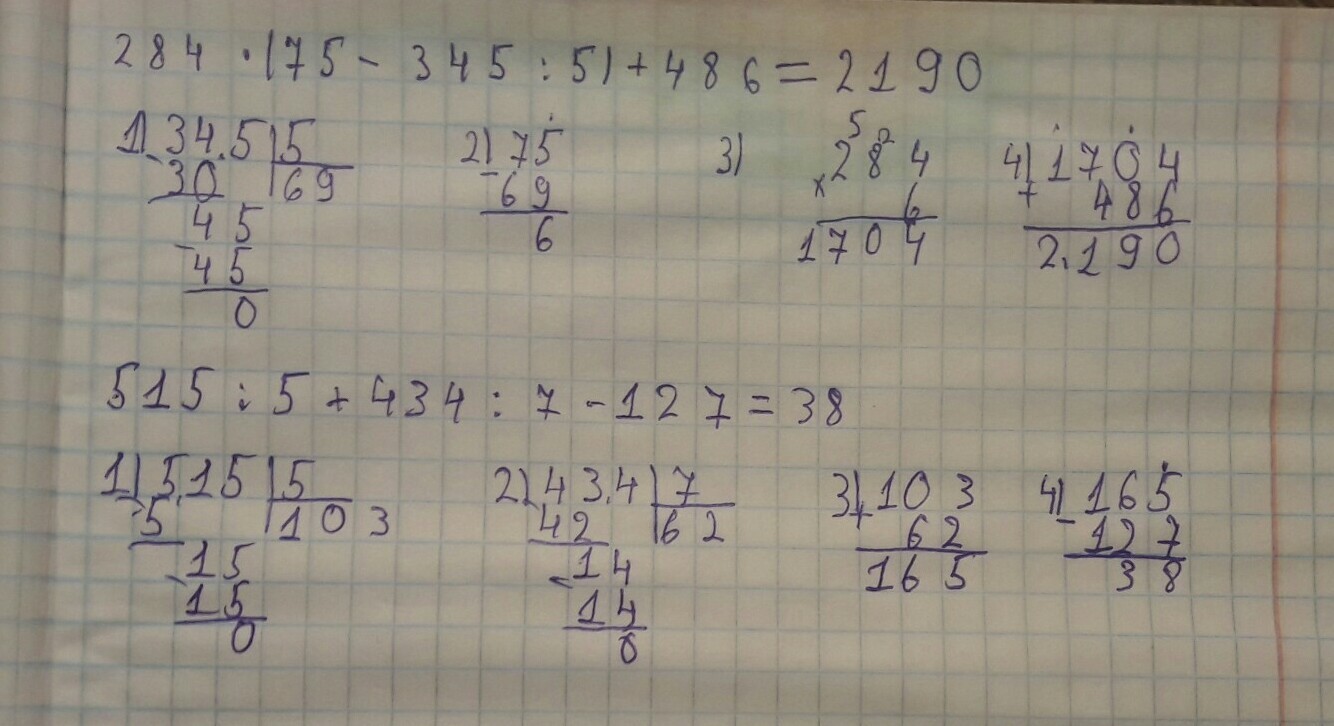 284 · (75 - 345 : 5) + 486 = 2190
1) 34.5 5 2) 75 3) 284 4) 1704
- 30 69 - 69 × 6 + 486
45 6 1704 2.190
- 45
0
515 : 5 + 434 : 7 - 127 = 38
1) 5.15 5 2) 43.4 7 3) 103 4) 165
- 5 103 - 42 62 + 62 - 127
15 14 165 38
- 15 - 14
0 0